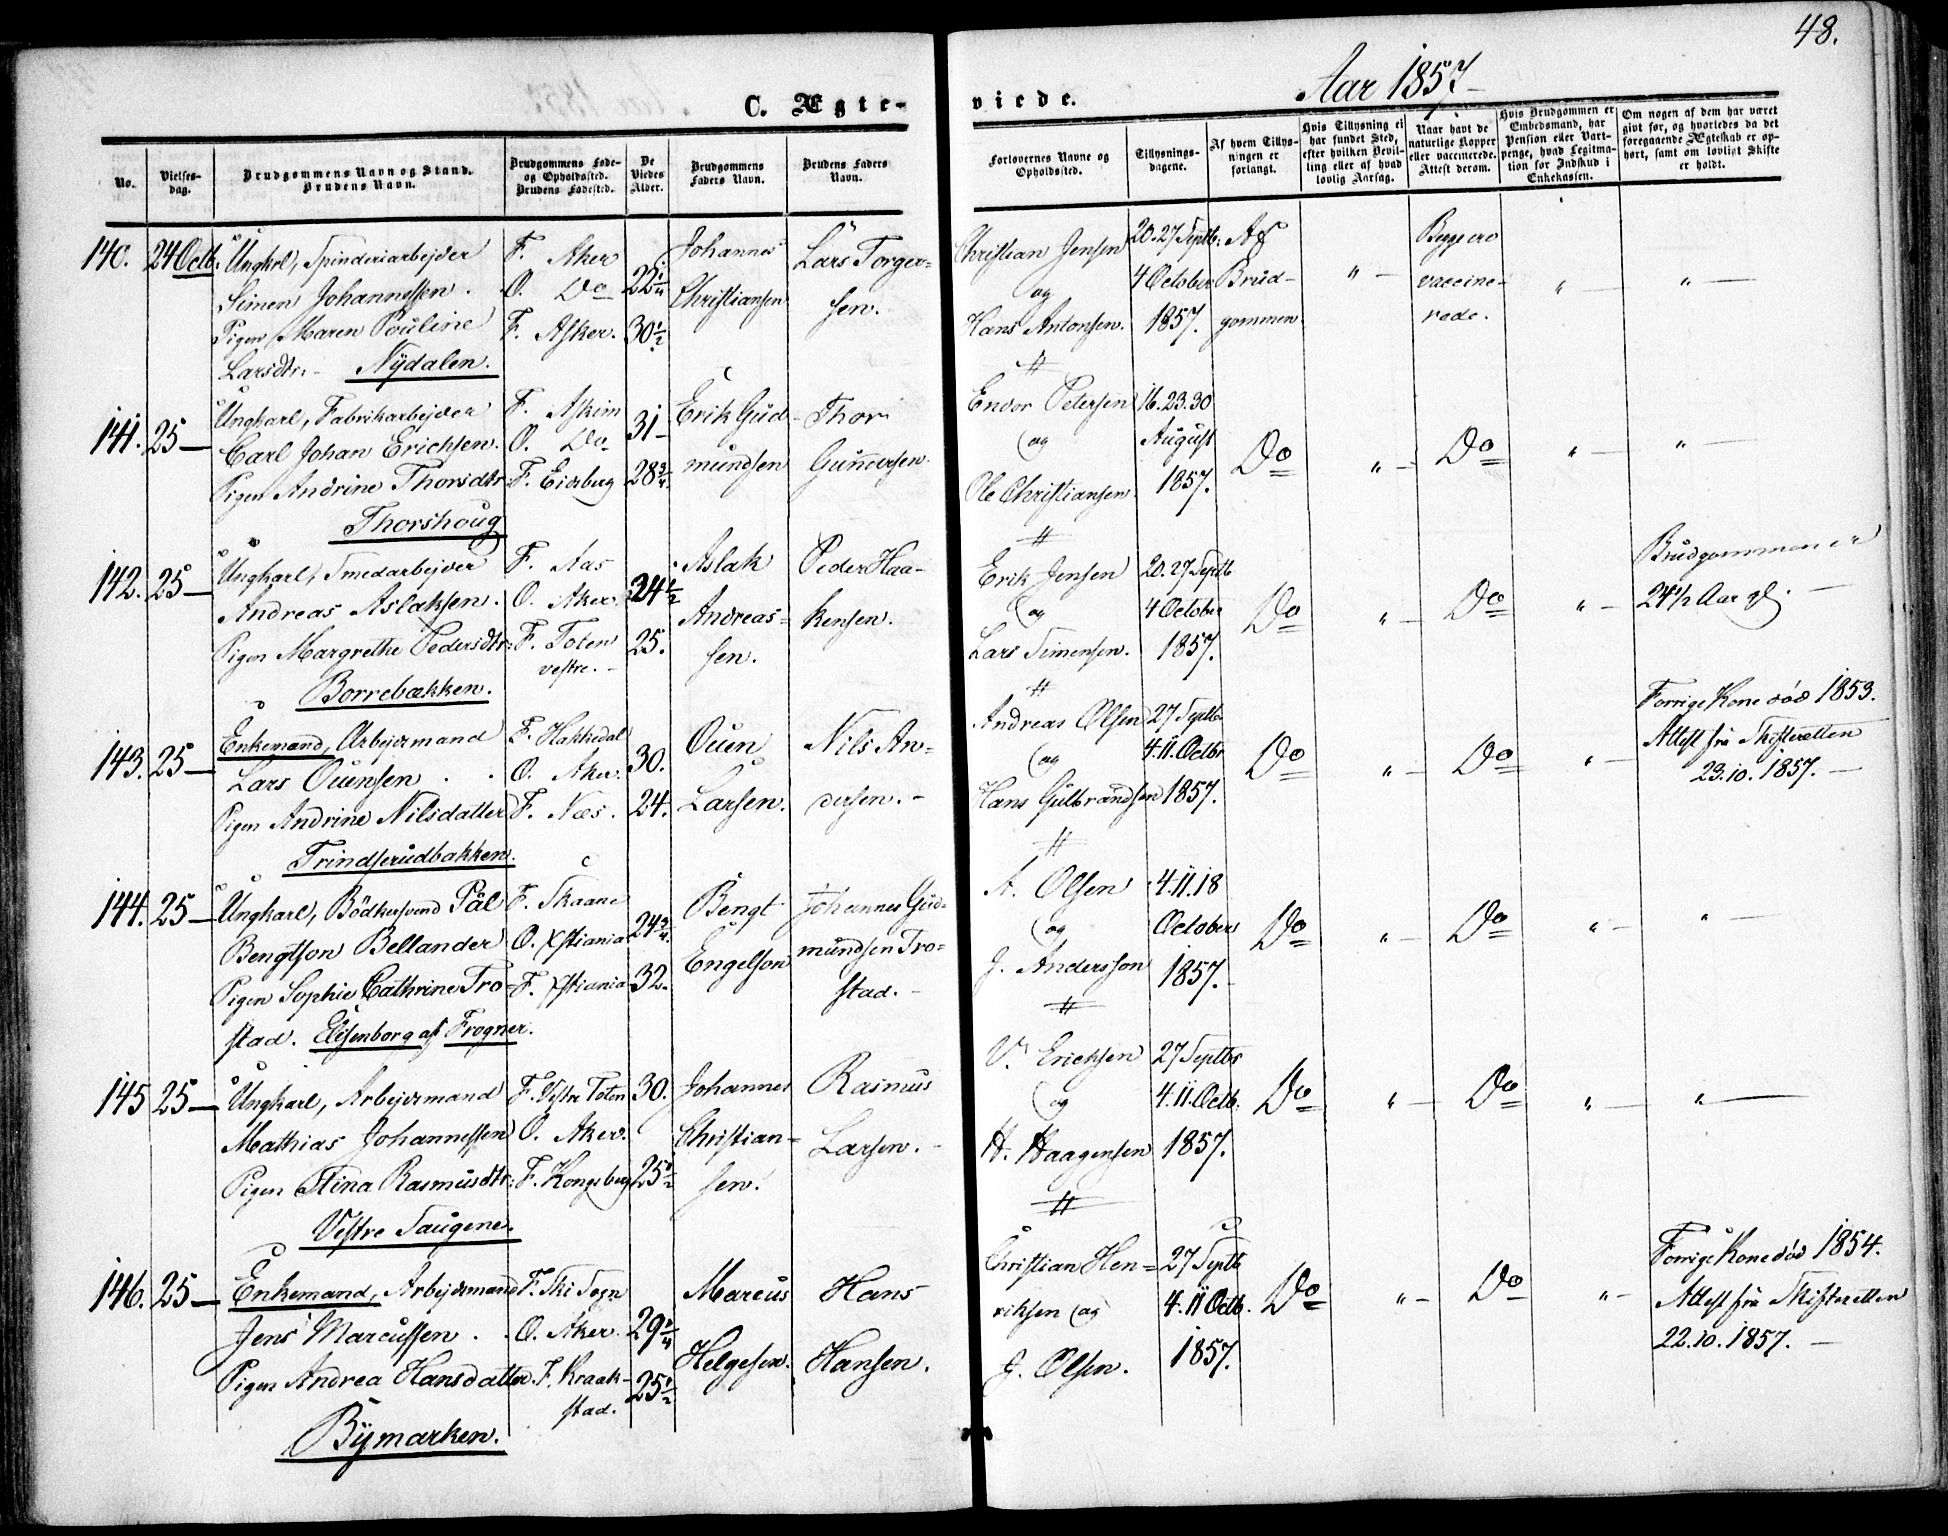 48.
C. Ægte-
viede.
Aar 1857
No.
Vielses-
dag.
Brudgommens Navn og Stand.
Brudens Navn.
Brudgommens Føde-
og Opholdssted.
Brudens Fødested.
De
Viedes
Alder.
Brudgommens
Faders Navn.
Brudens Faders
Navn.
Forlovernes Navne og
Opholdssted.
Tillysnings-
dagene.
Af hvem Tillys-
ningen er
forlangt.
Hvis Tillysning ei
har fundet Sted,
efter hvilken Bevil-
ling eller af hvad
lovlig Aarsag.
Naar havt de
naturlige Kopper
eller vaccinerede.
Attest derom.
Hvis Brudgommen er
Embedsmand, har
Pension eller Vart-
penge, hvad Legitima-
tion for Indskud i
Enkekassen.
Om nogen af dem har været
givt før, og hvorledes da det
foregaaende Ægteskab er op-
hørt, samt om lovligt Skifte
er holdt.
140. 24 Octb. Ungkrl, Spinderiarbejder
Simen Johannessen.
Pigen Maren Pouline
Larsdtr. Nydalen.
F. Aker
O. Do
F. Asker.
22 1/4
30 1/2
Johannes
Christiansen
Lars Torger-
sen.
Christian Jensen
og
Hans Antonsen.
20. 27 Septb:
4 October
1857.
Af
Brud-
gommen.
" —
Begge ere
vaccine-
rede.
" —
" —
141. 25 — Ungkarl, Fabrikarbejder
Carl Johan Erichsen.
Pigen Andrine Thorsdtr.
Thorshoug
F. Askim
O. Do
F. Eidsberg
31 —
28 3/4
Erik Gud-
mundsen
Thor
Gunnersen.
Endor Petersen
og
Ole Christiansen.
16. 23. 30
August
1857.
Do
" —
Do
" —
" —
142. 25 — Ungkarl, Smedarbejder
Andreas Aslaksen.
Pigen Margrethe Pedersdtr:
Borrebækken.
F. Aas
O. Aker.
F. Toten
vestre. —
24 1/2
25.
Aslak
Andreas-
sen.
Peder Haa-
kensen.
Erik Jensen
og
Lars Simensen.
20. 27 Septb
4 October
1857.
Do
" —
Do
" —
Brudgommen er
24 1/2 Aar gl. —
143. 25 — Enkemand, Arbejdsmand
Lars Ouensen
Pigen Andrine Nilsdatter
Trindserudbakken.
F. Hakkedal
O. Aker
F. Næs.
30.
24.
Ouen
Larsen.
Nils An-
dersen. —
Andreas Olsen
og
Hans Gulbrandsen
27 Septbr
4. 11. Octbr
1857.
Do
" —
Do
" —
Forrige Kone død 1853.
Attest fra Skifteretten
23. 10. 1857. —
144. 25 — Ungkarl, Bødkersvend Pål
Bengtson Bellander
Pigen Sophie Cathrine Tro-
stad. Elisenborg af Frogner.
F. Skaane
O. Xstiania
F. Xstiania
24 3/4
32.
Bengt
Engelson
Johannes Gud-
mundsen Tro-
stad. —
A. Olsen
og
J. Andersson
4. 11. 18
October
1857. —
Do
" —
Do
" —
" —
145 25 — Ungkarl, Arbejdsmand
Mathias Johannessen
Pigen Stina Rasmusdtr:
Vestre Taugene.
F. Vestre Toten
O. Aker.
F. Kongsberg
30.
25 1/2
Johannes
Christian-
sen.
Rasmus
Larsen. —
V. Ericksen
og
H. Haagensen
27 Septbr
4. 11. Octb.
1857.
Do
" —
Do
" —
" —
146. 25 — Enkemand, Arbejdsmand
Jens Marcussen.
Pigen Andrea Hansdatter.
Bymarken.
F. Ski Sogn
O. Aker.
F. Kraak-
stad.
29 1/4
25 1/2
Marcus
Helgesen.
Hans
Hansen.
Christian Hen-
riksen og
J. Olsen.
27 Septb
4. 11 Octb.
1857.
Do
" —
Do
" —
Forrige Kone død 1854.
Attest fra Skifteretten
22. 10. 1857. —